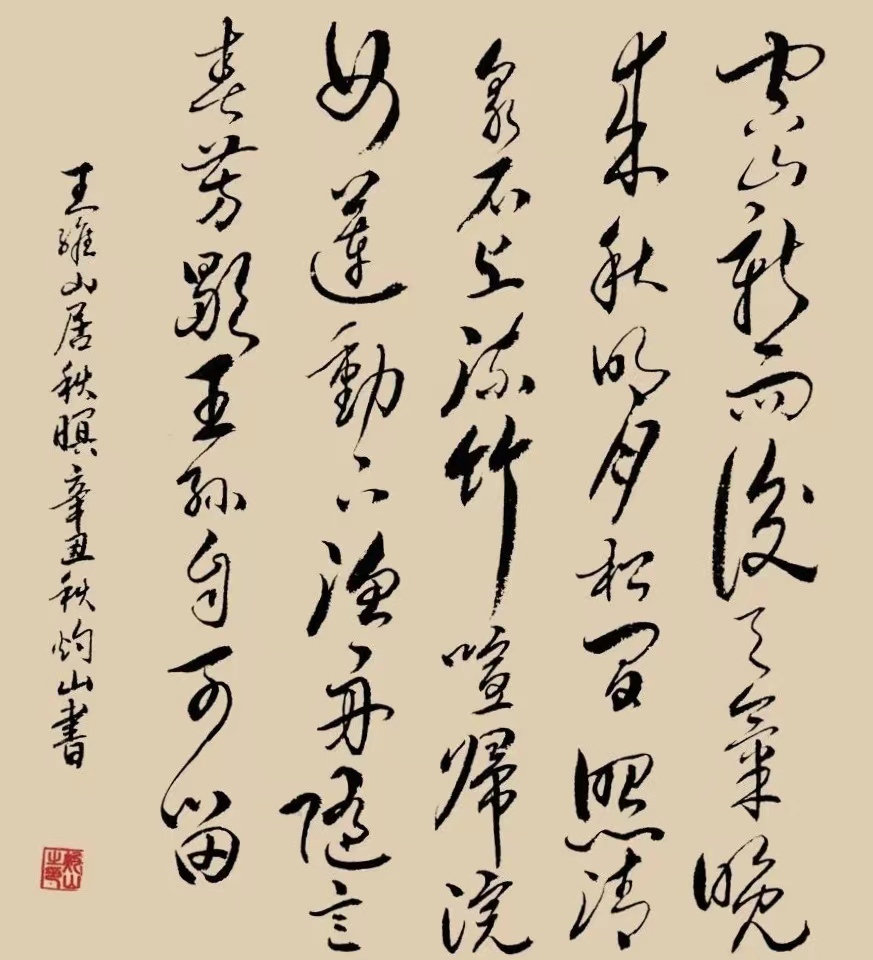 空山新雨後天氣晚
来秋明月松間照清
泉石上流竹喧歸浣
女蓮動下漁舟隨意
春芳歇王孫自可留
王維山居秋暝辛丑秋灼山書